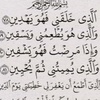 ٱلَّذِى خَلَقَنِى فَهُوَ يَهْدِينِ
وَٱلَّذِى هُوَ يُطْعِمُنِى وَيَسْقِينِ
وَإِذَا مَرِضْتُ فَهُوَ يَشْفِينِ
وَٱلَّذِى يُمِيتُنِى ثُمَّ يُحْيِينِ
وَٱلَّذِىٓ أَطْمَعُ أَن يَغْفِرَ